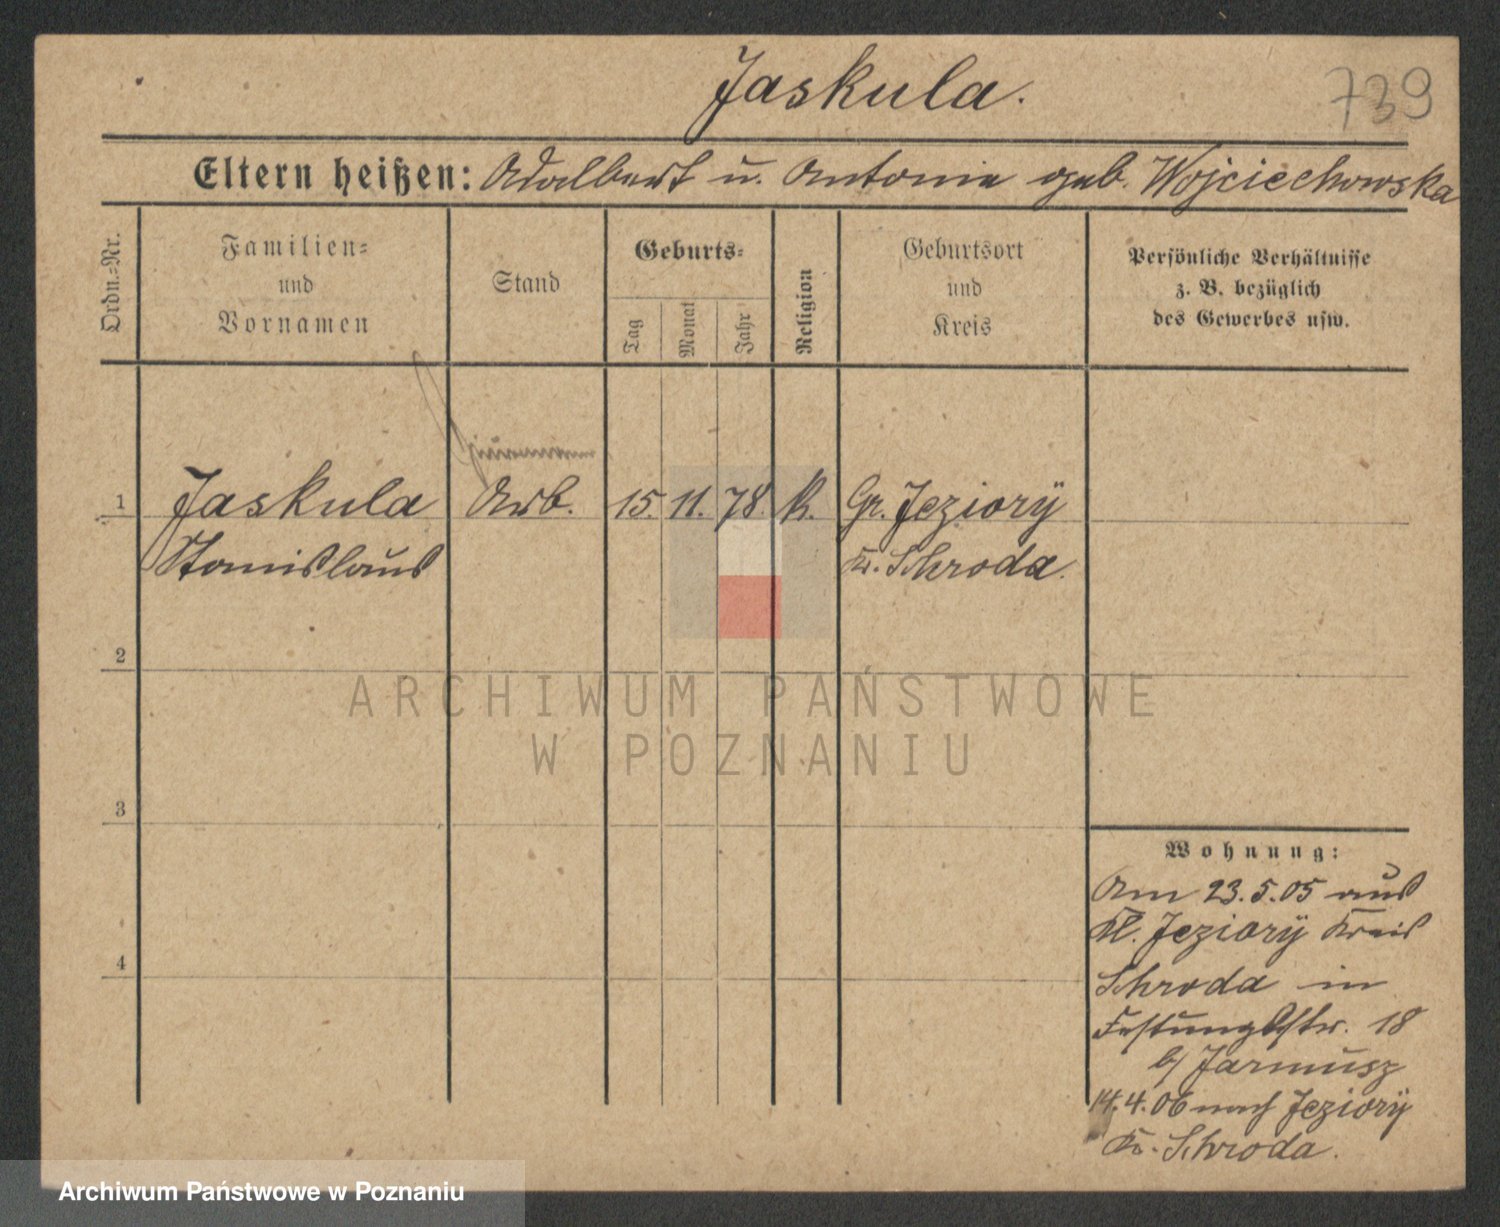 Jaskula.
739
Eltern heißen: Adalbert u. Antonie geb. Wojciechowska
Ordn.=Nr.
Familien=
und
Vornamen
Stand
Geburts=
Tag
Monat
Jahr
Religion
Geburtsort
und
Kreis
Persönliche Verhältnisse
z. B. bezüglich
des Gewerbes usw.
1
Jaskula Arb. 15. 11. 78. k. Gr. Jeziorÿ
Stanislaus Kr. Schroda.
2
3
4
Wohnung:
Am 23.5.05 aus
Kl. Jeziorÿ Kreis
Schroda in
Festungsstr. 18
b/ Jarmusz
14.4.06 nach Jeziorÿ
Kr. Schroda.
ARCHIWUM PAŃSTWOWE
W POZNANIU
Archiwum Państwowe w Poznaniu